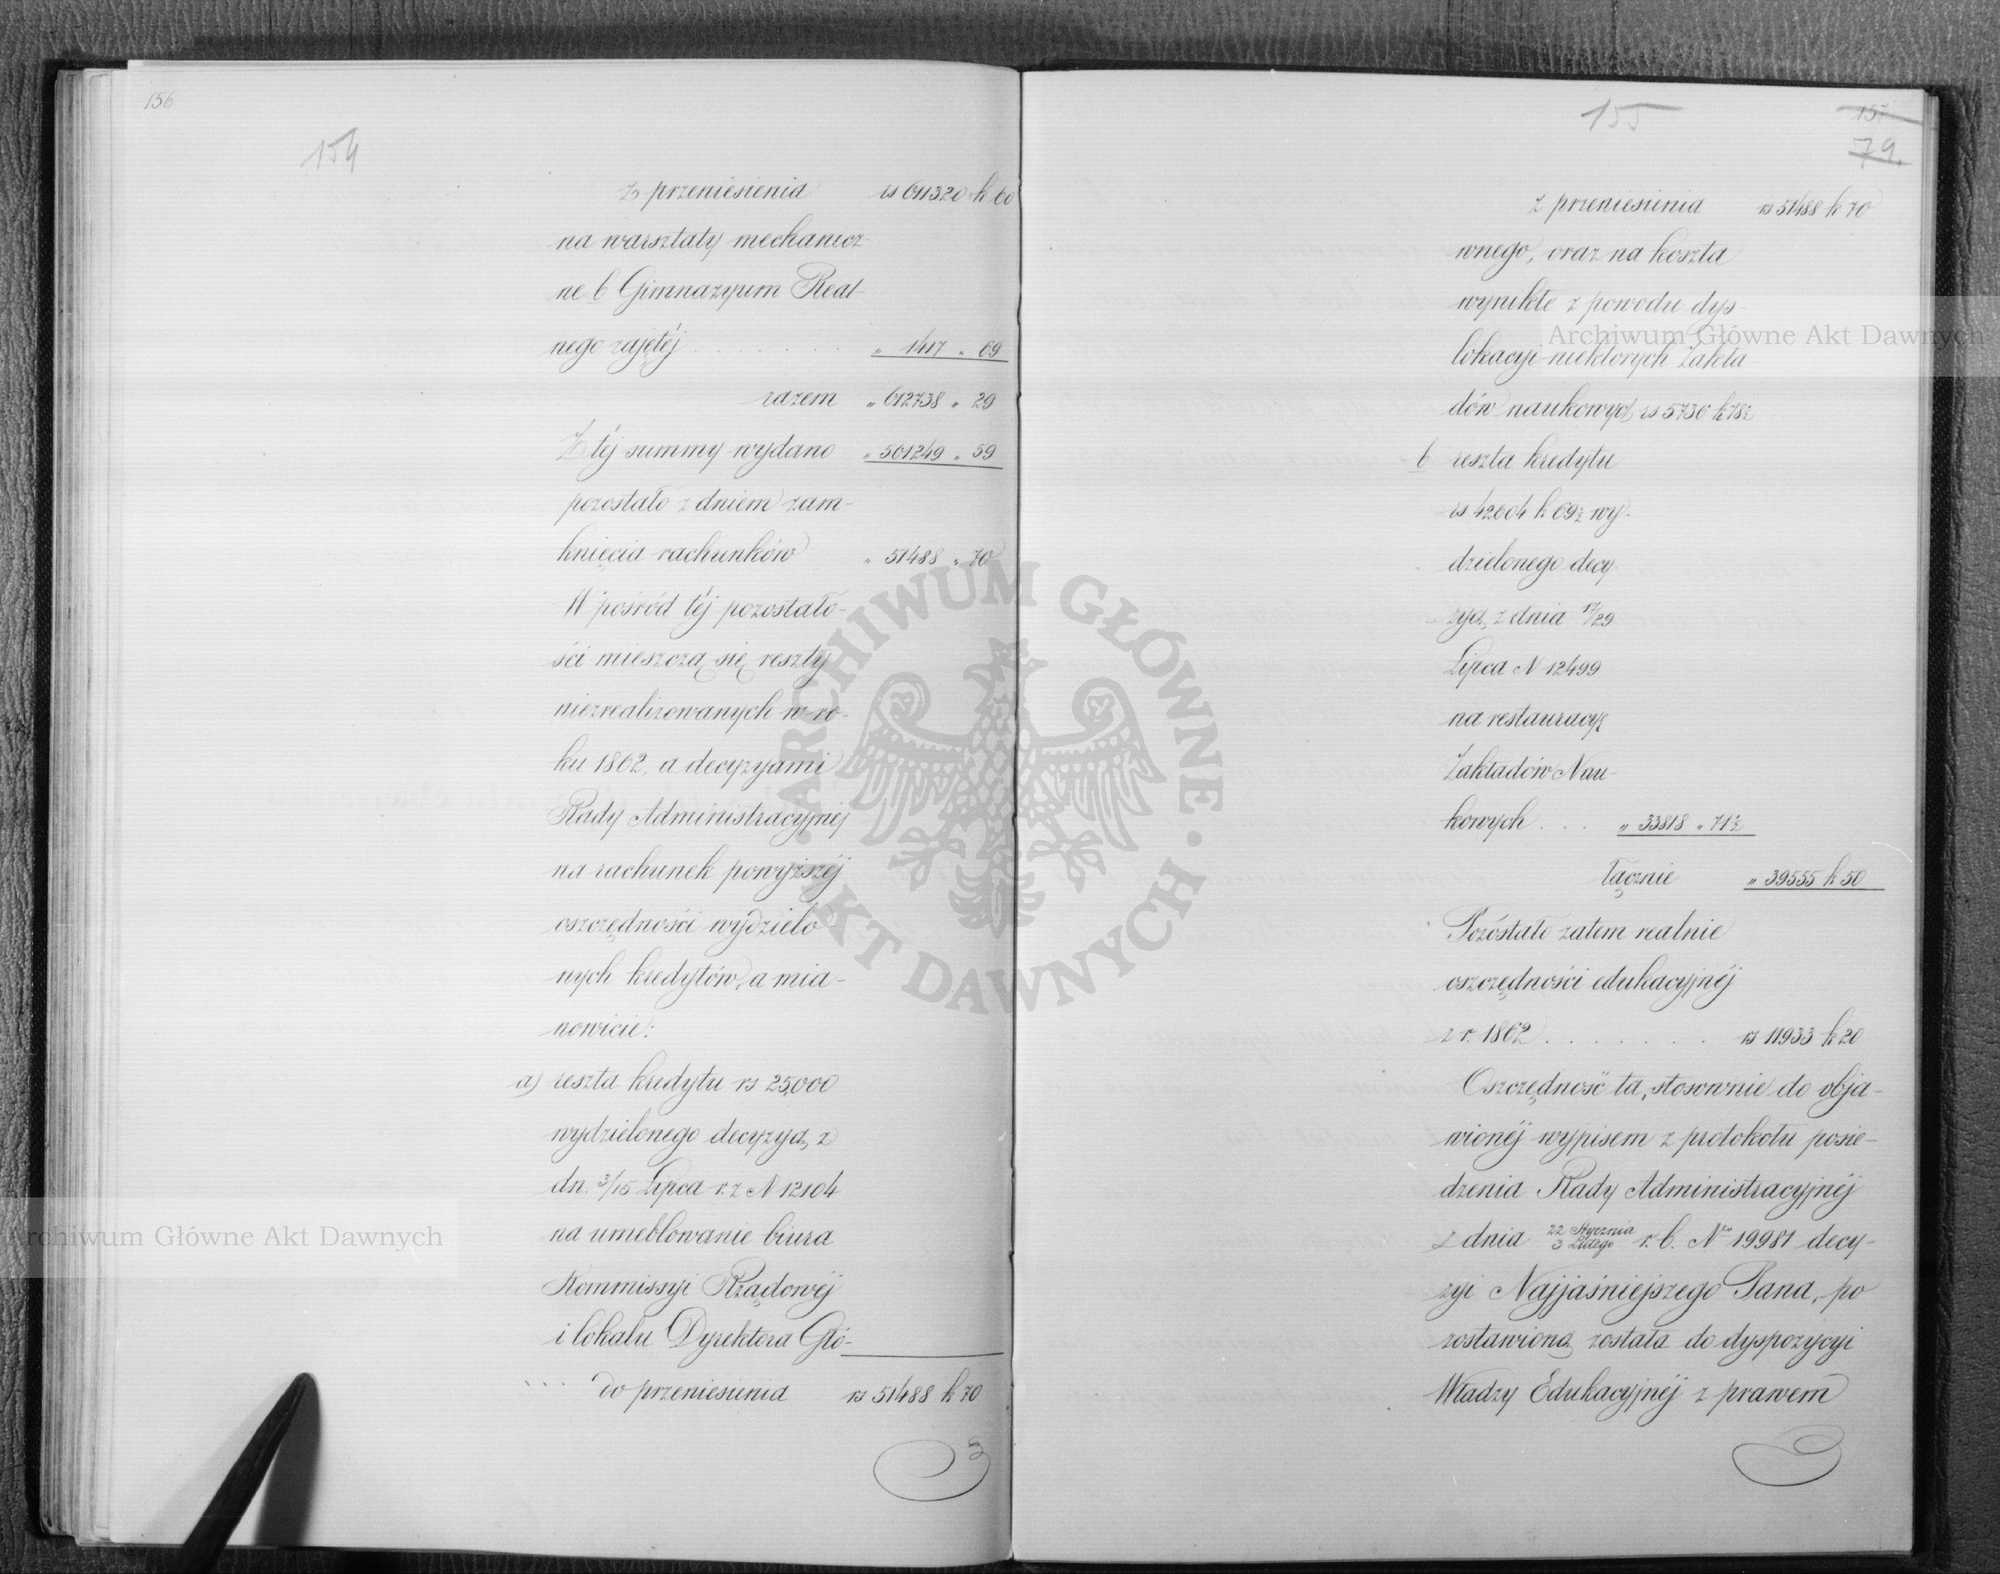 156
154
z przeniesienia rs 611320 k 60
na warsztaty mechanicz-
ne b Gimnazyum Real-
nego zajętéj . . . . . . . . „ 1417 „ 69
razem „ 612738 „ 29
Z téj summy wydano „ 561249 „ 59
pozostało z dniem zam-
knięcia rachunków „ 51488 „ 70
W pośród téj pozostało-
ści mieszczą się reszty
niezrealizowanych w ro-
ku 1862, a decyzyjami
Rady Administracyjnéj
na rachunek powyższéj
oszczędności wydzielo-
nych kredytów, a mia-
nowicie:
a) reszta kredytu rs 25,000
wydzielonego decyzyą z
dn. 3/15 Lipca r. z N 12104
na umeblowanie biura
Kommissyi Rządowéj
i lokalu Dyrektora Głó-
do przeniesienia rs 51488 k 70
155
157
79.
z przeniesienia rs 51488 k 70
wnego, oraz na koszta
wynikłe z powodu dys-
lokacyi niektórych Zakła-
dów naukowych rs 5736 k 78½
b reszta kredytu
rs 42604 k 69½ wy-
dzielonego decy
zyą z dnia 17/29
Lipca N 12499
na restauracyę
Zakładów Nau-
kowych . . . „ 33818 „ 71½
łącznie „ 39555 k 50
Pozostało zatem realnie
oszczędności edukacyjnéj
z r. 1862 . . . . . . . rs 11933 k 20
Oszczędność ta, stosownie do obja-
wionéj wypisem z protokołu posie-
dzenia Rady Administracyjnéj
z dnia 22 Stycznia / 3 Lutego r. b. No 19981 decy-
zyi Najjaśniejszego Pana, po
zostawioną została do dyspozycyi
Władzy Edukacyjnéj z prawem
Archiwum Główne Akt Dawnych
Archiwum Główne Akt Dawnych
ARCHIWUM GŁÓWNE · AKT DAWNYCH ·